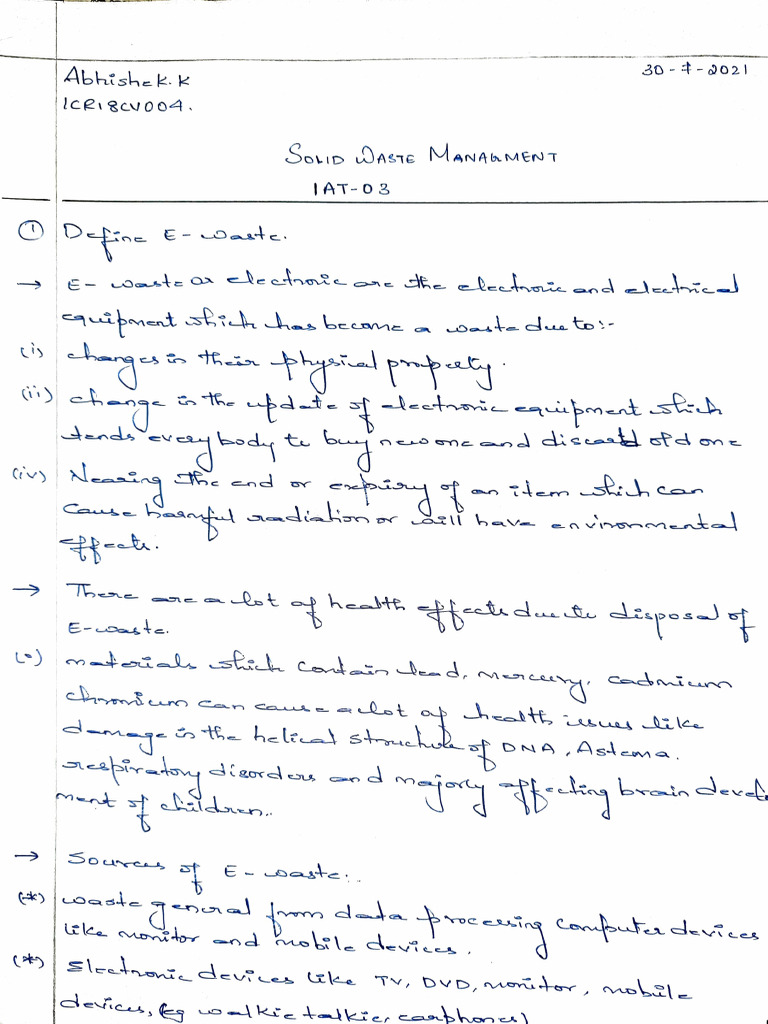 Abhishek.K
30-7-2021
1CR18CV004.
SOLID WASTE MANAGMENT
IAT-03
① Define E-waste.
→ E-waste or electronic are the electronic and electrical
equipment which has become a waste due to:-
(i) changes in their physical property.
(ii) change in the update of electronic equipment which
tends everybody to buy new one and discard old one
(iv) Nearing the end or expiry of an item which can
cause harmful radiation or will have environmental
effects.
→ There are a lot of health effects due to disposal of
E-waste.
(•) materials which contain lead, mercury, cadmium
chromium can cause a lot of health issues like
damage in the helical structure of DNA, Astema.
respiratory disorders and majorly affecting brain develop
ment of children..
→ Sources of E-waste:.
(*) waste general from data processing computer devices
like monitor and mobile devices.
(*) Electronic devices like TV, DVD, monitor, mobile
devices, (eg walkie talkie, carphones)